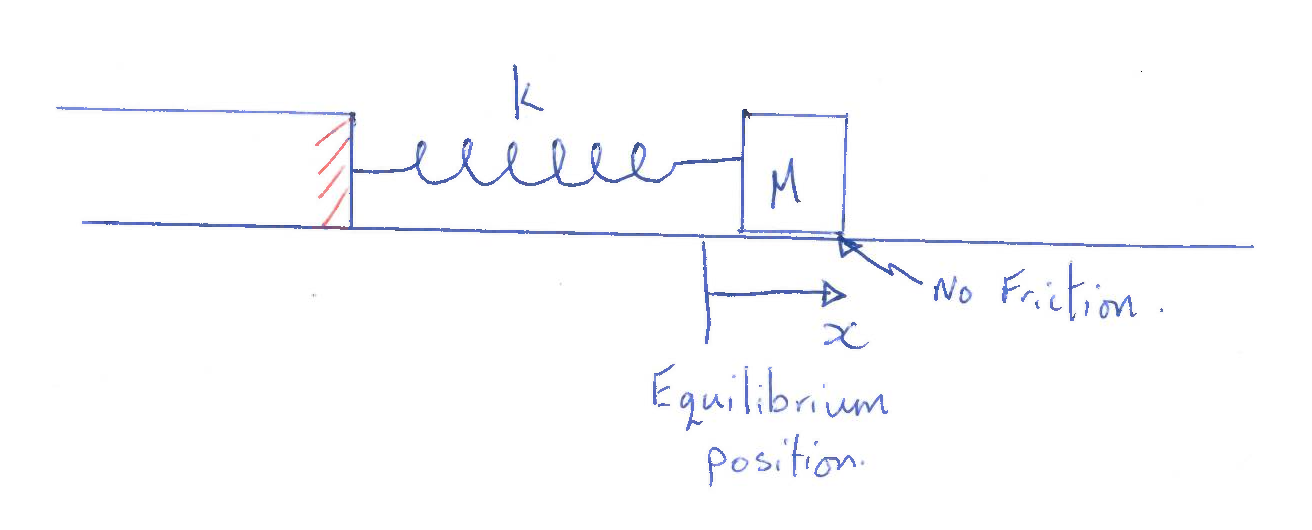 k
M
No Friction.
x
Equilibrium
position.